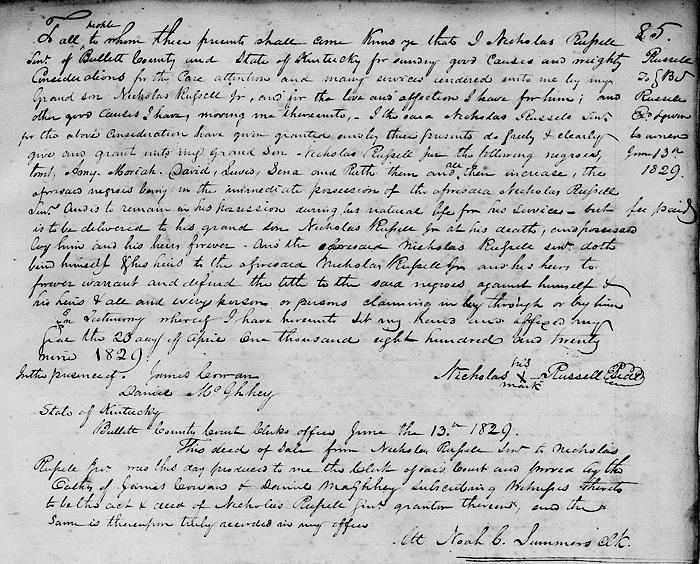 people
To all to whom these presents shall come Know ye that I Nicholas Russell
Senr. of Bullett County and State of Kentucky for sunday good causes and weighty
Considerations for the Care attention and many services rendered unto me by my
Grand son Nicholas Russell Jr, and for the love and affection I have for him; and
other good Causes I have, moving me thereunto, - I the said Nicholas Russell Senr.
for the above Consideration have given granted and by these presents do freely & clearly
give and grant unto my Grand Son Nicholas Russell Junr the following negroes,
towit, Amy. Moriah. David, Lewis, Dena and Ruth them and all their increase, the
aforesaid negroes being in the immediate possession of the aforesaid Nicholas Russell
Senr. And is to remain in his possession during his natural life for his services - but
is to be delivered to his grand son Nicholas Russell Jr at his death, and possessed
by him and his heirs forever. And the aforesaid Nicholas Russell senr. doth
bind himself & his heirs to the aforesaid Nicholas Russell Jr and his heirs to
forever warrant and defend the title to the said negroes against himself &
his heirs & all and every person or persons claiming in by through or by him
In Testimony whereof I have hereunto Set my hand and affixed my
Seal the 20 day of April One thousand eight hundred and twenty
nine 1829.
In the presence of. James Cowan
Daniel McGhhey
his
Nicholas X Russell Seal
mark
State of Kentucky
Bullett County Court Clerks office June the 13.th 1829.
This deed of Sale from Nicholas Russell Senr to Nicholas
Russell Jnr. was this day produced to me the Clerk of said Court and proved by the
Oaths of James Cowan & Daniel MaGhhey subscribing Witnesses thereto
to be the act & deed of Nicholas Russell Senr grantor thereof, and the
Same is thereupon truly recorded in my office
Att Noah C. Summers Clk.
85.
Russell
To
Russell
June 13.th
1829.
fee paid